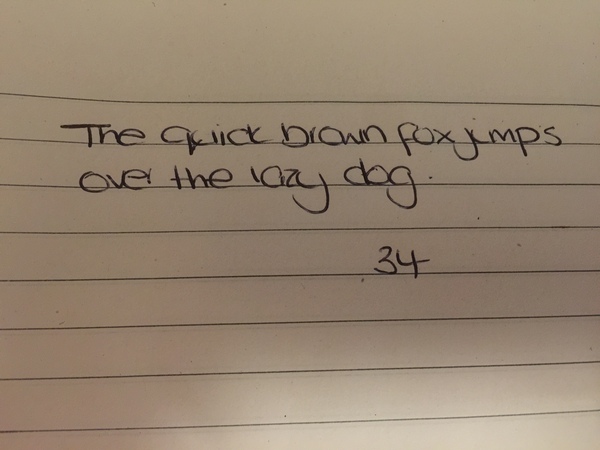 The quick brown fox jumps
over the lazy dog.
34